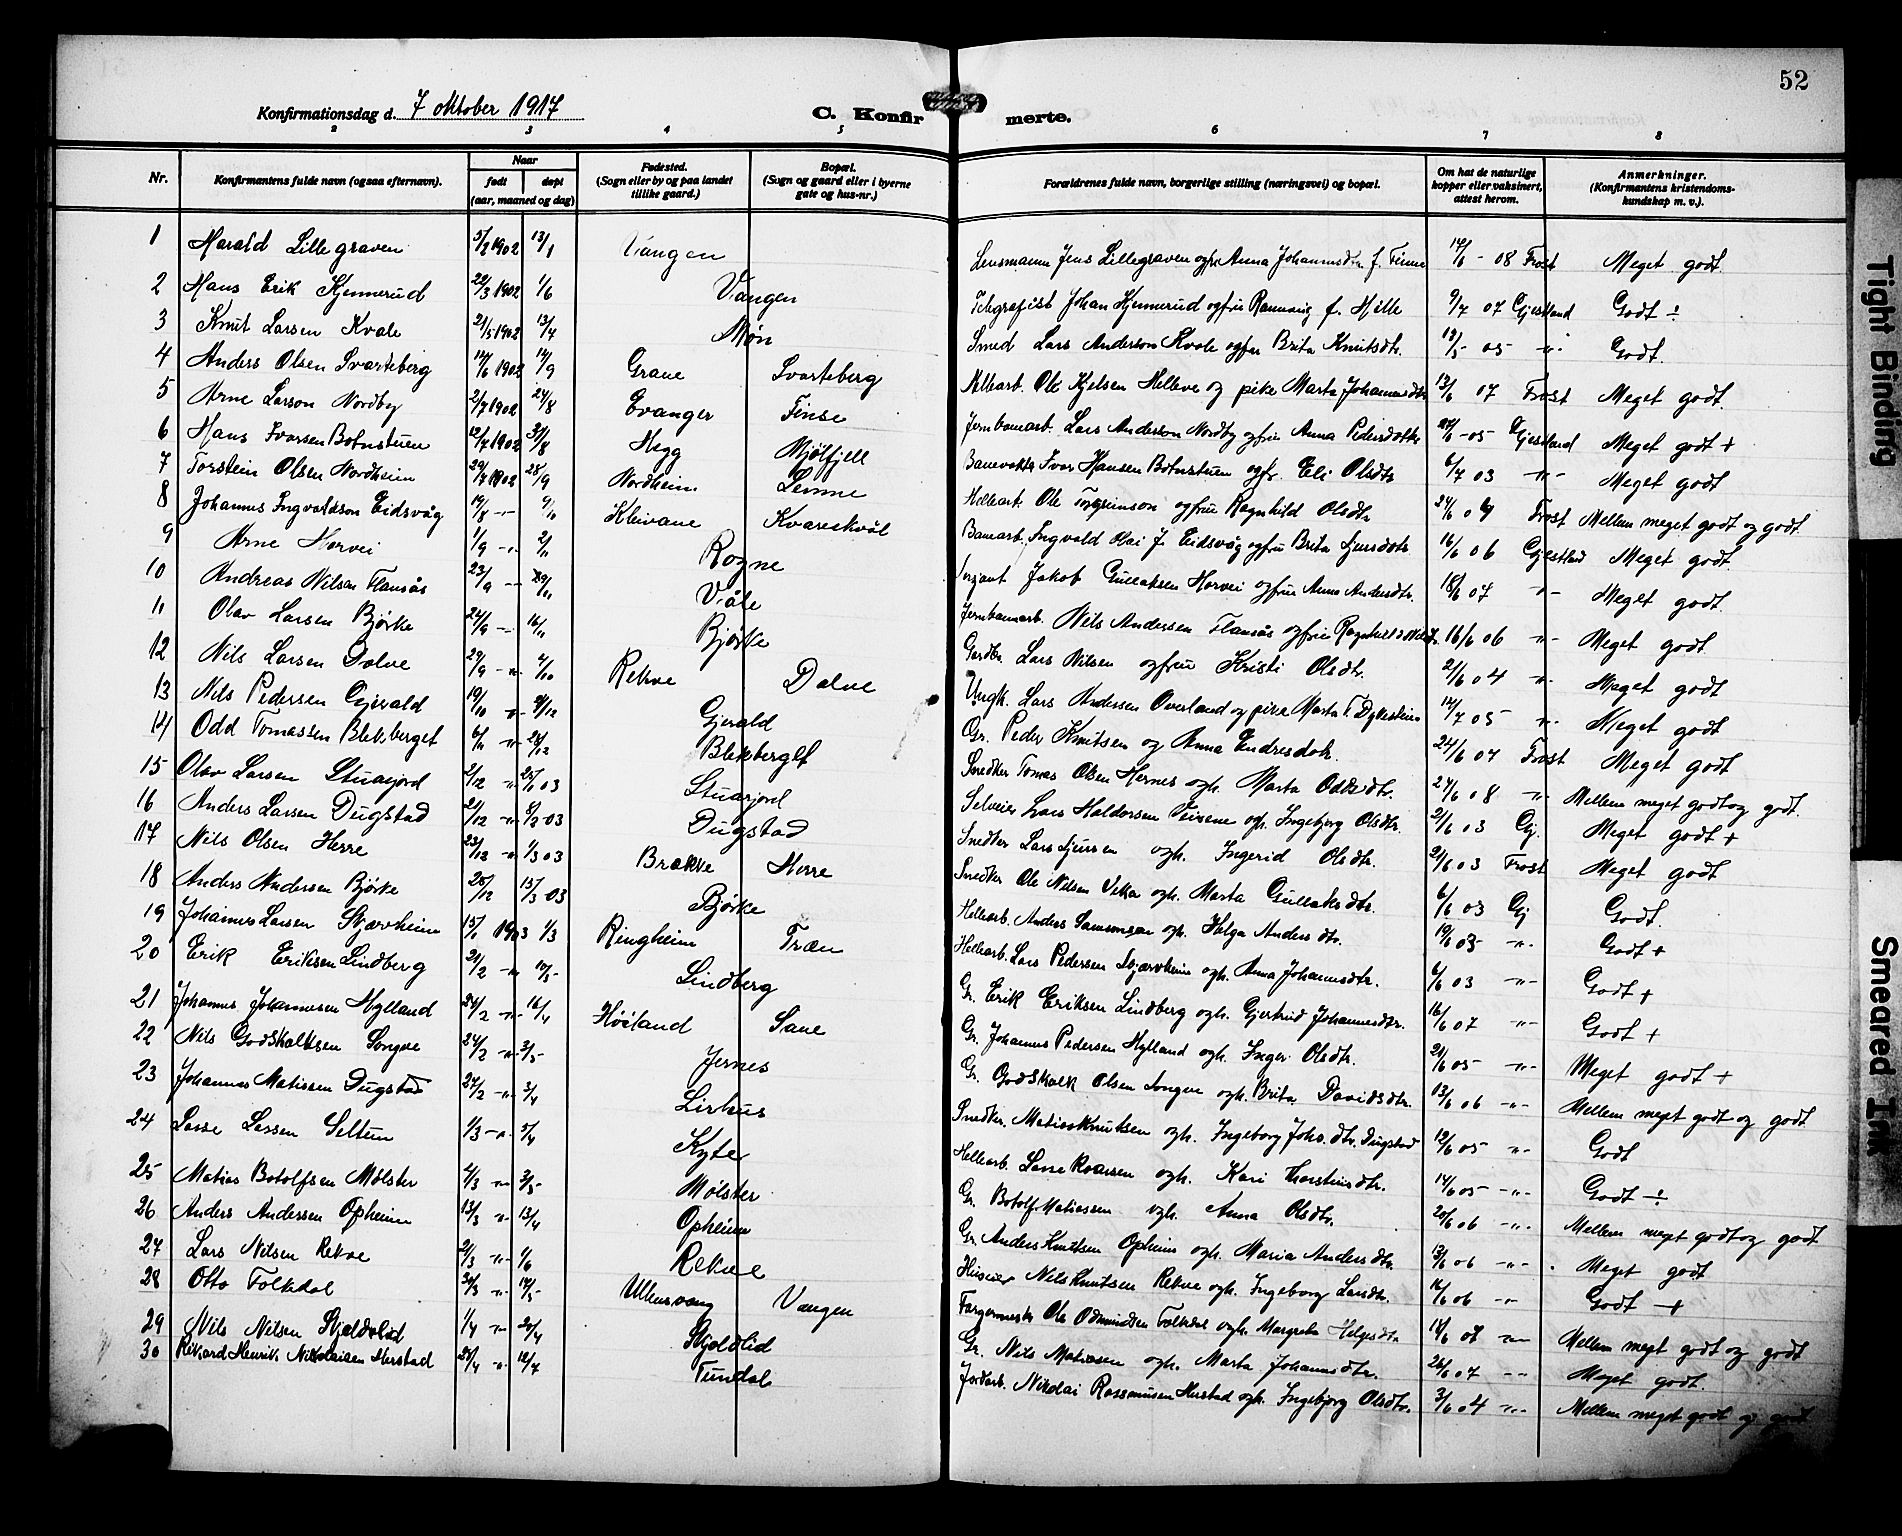 52
Konfirmationsdag d. 7 oktober 1917
C. Konfirmerte.
2 3 4 5 6 7 8
Nr.
Konfirmantens fulde navn (ogsaa efternavn).
Naar
født døpt
(aar, maaned og dag)
Fødested.
(Sogn eller by og paa landet
tillike gaard.)
Bopæl.
(Sogn og gaard eller i byerne
gate og hus-nr.)
Forældrenes fulde navn, borgerlige stilling (næringsvei) og bopæl.
Om hat de naturlige
kopper eller vaksinert,
attest herom.
Anmerkninger.
(Konfirmantens kristendoms-
kundskap m. v.).
1 Harald Lillegraven 1902 13/1 Vangen Lensmann Jens Lillegraven ogfr. Anna Johannesdtr. f. Finne 08 Frost Meget godt
2 Hans Erik Hjemmerud 22/3 1902 1/6 Vangen Telegrafist Johan Hjemmerud ogfru Rannveig f. Hjelle 9/7 07 Gjestland Godt ÷
3 Knut Larsen Kvale 21/5 1902 13/7 Møn Smed Lars Anderson Kvale ogfru Brita Knutsdtr. 05 -"- Godt.
4 Anders Olsen Svarteberg 14/6 1902 14/9 Graue Svarteberg Hellearb. Ole Kjelsen Helleve og pike Marta Johannesdtr 13/6 07 Frost Meget godt.
5 Arne Larson Nordby 2/7 1902 24/8 Evanger Finse Jernbanearb. Lars Anderson Nordby ogfru Anna Pedersdotter 05 Gjestland Meget godt +
6 Hans Ivarsen Botnstuen 12/7 1902 31/8 Hegg Mjølfjell Banevokter Ivar Hansen Botnstuen ogfr. Eli Olsdtr 6/7 03 -"- Meget godt
7 Torstein Olsen Nordheim 29/7 1902 28/9 Nordheim Lemme Hellearb. Ole ogfru Ragnhild Olsdtr 24/6 04 Frost Mellem meget godt og godt.
8 Johannes Ingvaldson Eidsvåg 14/8 -"- 9/10 Kleivane Kvareskvål Banearb. Ingvald Eidsvåg ogfru Brita Sjursdotr 16/6 06 Gjestland Meget godt.
9 Arne Horvei 1/9 -"- 2/11 Rogne Serjant Jakob Gullaksen Horvei ogfru Anna Andersdtr. 18/6 07 -"- Meget godt
10 Andreas Nilsen Flansås 23/9 -"- Våle Jernbanearb. Nils Andersen Flansås ogfru Ragnhild 16/6 06 -"- Meget godt
11 Olav Larsen Bjørke 24/9 -"- 16/11 Bjørke Gardbr. Lars Nilsen ogfru Kristi Olsdtr. 2/6 04 -"- Meget godt
12 Nils Larsen Dolve 29/9 -"- 4/10 Rekve Dolve Ungk. Lars Andersen Overland og pike Marta T. Dykestein 14/7 05 -"- Meget godt
13 Nils Pedersen Gjerald 19/10 -"- Gjerald Gr. Peder Knutsen og Anna Endresdotr. 24/6 07 Frost Meget godt
14 Odd Tomassen Bleksberget 6/11 -"- 26/12 Blekberget Snedker Tomas Olsen Hernes ogh. Marta Oddsdtr. 27/6 08 -"- Mellem meget godt og godt.
15 Olav Larsen Stuasjord 2/12 -"- 25/1 03 Stuasjord Selveier Lars Haldorsen Feirene ogh. Ingebjorg Olsdtr. 21/6 03 Gj. Meget godt +
16 Anders Larsen Dugstad 21/12 -"- 8/2 03 Dugstad Snedker Lars Sjursen ogh. Ingerid Olsdtr. 21/6 03 Frost Meget godt
17 Nils Olsen Herre 23/12 -"- 1/3 03 Brække Herre Snedker Ole Nilsen Veka ogh. Marta Gullaksdtr. 6/6 03 Gj Godt.
18 Anders Andersen Bjørke 25/12 15/3 03 Bjørke Hellearb. Anders Samsonsen ogh. Helga Andersdtr. 19/6 03 -"- Godt +
19 Johannes Larsen Skjærvheim 15/1 1903 1/3 Ringheim Træn Hellearb. Lars Pedersen Skjærvheim ogh. Anna Johannesdtr. 6/6 03 -"- Godt +
20 Erik Eriksen Lindberg 21/2 -"- 10/5 Lindberg Gr. Erik Eriksen Lindberg ogh. Gjertrud Johannesdtr. 16/6 07 -"- Godt +
21 Johannes Johannesen Hylland 24/2 -"- 16/4 Høiland Saue Gr. Johannes Pedersen Hylland ogh. Inger Olsdtr. 21/6 05 -"- Meget godt +
22 Nils Godskalksen Songve 24/2 -"- 3/5 Jernes Gr. Godskalk Olsen Songve ogh. Brita Davidsdtr. 13/6 06 -"- Mellem meget godt og godt
23 Johannes Matissen Dugstad 27/2 -"- 3/4 Lirhus Snedker. Matias Knutsen ogh. Ingeborg Johs.dtr. Dugstad 12/6 05 -"- Godt
24 Lasse Lassen Seltun 1/3 -"- 5/4 Kyte Hellearb. Lasse ogh. Kari Thorsteinsdtr. 14/6 05 -"- Godt ÷
25 Matias Botolfsen Mølster 4/3 -"- 3/5 Mølster Gr. Botolf Matiassen ogh. Anna Olsdtr. 20/6 06 -"- Mellem meget godt og godt
26 Anders Andersen Opheim 13/3 -"- 13/4 Opheim Gr. Anders Knutsen Opheim ogh. Maria Andersdtr. 13/6 06 -"- Meget godt
27 Lars Nilsen Rekve 21/3 -"- 1/6 Rekve Huseier Nils Knutsen Rekve ogh. Ingeborg Larsdtr. 16/6 06 -"- Godt +
28 Otto Folkedal 30/3 -"- 17/5 Ullensvang Vangen Fargermester Ole Odmundsen Folkedal ogh. Margreta Helgesdtr 14/6 07 -"- Mellem meget godt og godt
29 Nils Nilsen Skjeldolid 1/4 -"- 26/4 Skjoldlid Gr. Nils Matiasen ogh. Marta Johannesdtr. 26/6 07 -"- Meget godt.
30 Rikard Henrik Nikolaisen Herstad 24/4 -"- 12/7 Tundal Jordarb. Nikolai Rasmusen Herstad ogh. Ingebjørg Olsdtr. 3/6 04 -"- Mellem meget godt og godt
Tight Binding
Smeared Ink